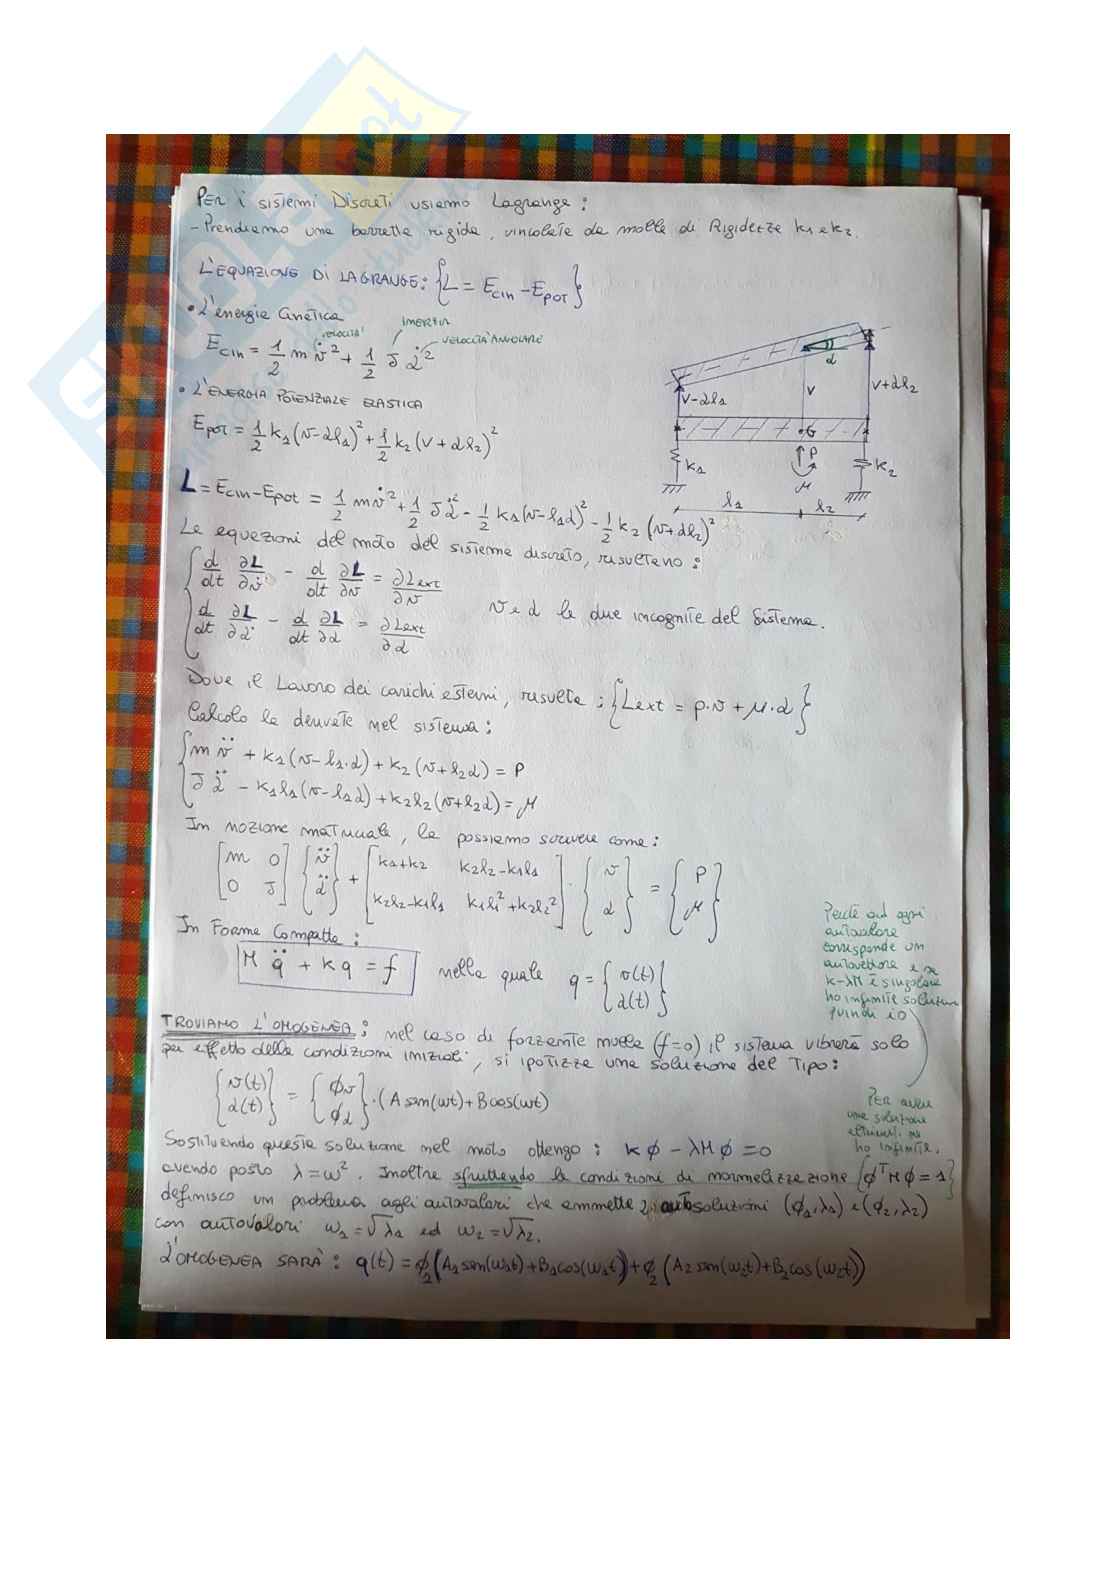 PER i sistemi Discreti usiamo Lagrange:
- Prendiamo una barretta rigida, vincolata da molle di Rigidezza k1 e k2.
L'EQUAZIONE DI LAGRANGE: {L = Ecin - Epot}
• L'energia Cinetica
VELOCITA'
INERZIA
VELOCITÀ ANGOLARE
Ecin = 1/2 m v̇² + 1/2 J α̇²
• L'ENERGIA POTENZIALE ELASTICA
Epot = 1/2 k1 (v-αl1)² + 1/2 k2 (v+αl2)²
α
v-αl1
v
v+αl2
G
k1
P
μ
k2
l1
l2
L = Ecin-Epot = 1/2 m v̇² + 1/2 J α̇² - 1/2 k1 (v-l1α)² - 1/2 k2 (v+αl2)²
Le equazioni del moto del sistema discreto, risultano:
d/dt ∂L/∂v̇ - d/dt ∂L/∂v = ∂Lext/∂v
d/dt ∂L/∂α̇ - d/dt ∂L/∂α = ∂Lext/∂α
v e α le due incognite del Sistema.
Dove il Lavoro dei carichi esterni, risulta: {Lext = p·v + μ·α}
Calcolo le derivate nel sistema:
m v̈ + k1 (v-l1·α) + k2 (v+l2α) = P
J α̈ - k1l1 (v-l1α) + k2l2 (v+l2α) = μ
In nozione matriciale, le possiamo scrivere come:
[m 0] {v̈} + [k1+k2 k2l2-k1l1] · {v} = {P}
[0 J] {α̈} [k2l2-k1l1 k1l1²+k2l2²] {α} {μ}
In Forma Compatta:
M q̈ + kq = f nella quale q = {v(t) α(t)}
Perché ad ogni
autovalore
corrisponde un
autovettore e se
k-λM è singolare
ho infinite soluzioni
quindi io
TROVIAMO L'OMOGENEA: nel caso di forzante nulla (f=0) il sistema vibrerà solo
per effetto della condizioni iniziali, si ipotizza una soluzione del Tipo:
{v(t) α(t)} = {ϕv ϕα} · (A sen(ωt) + B cos(ωt)
PER avere
una soluzione
altrimenti ne
ho infinite.
Sostituendo questa soluzione nel moto ottengo: kϕ - λMϕ = 0
avendo posto λ=ω². Inoltre sfruttendo le condizioni di normalizzazione {ϕᵀMϕ=1}
definisco un problema agli autovalori che ammette 2 autosoluzioni (ϕ1,λ1) e (ϕ2,λ2)
con autovalori ω1=√λ1 ed ω2=√λ2.
L'OMOGENEA SARÀ: q(t) = ϕ2 (A1 sen(ω1t)+B1cos(ω1t)) + ϕ2 (A2 sen(ω2t)+B2cos(ω2t))